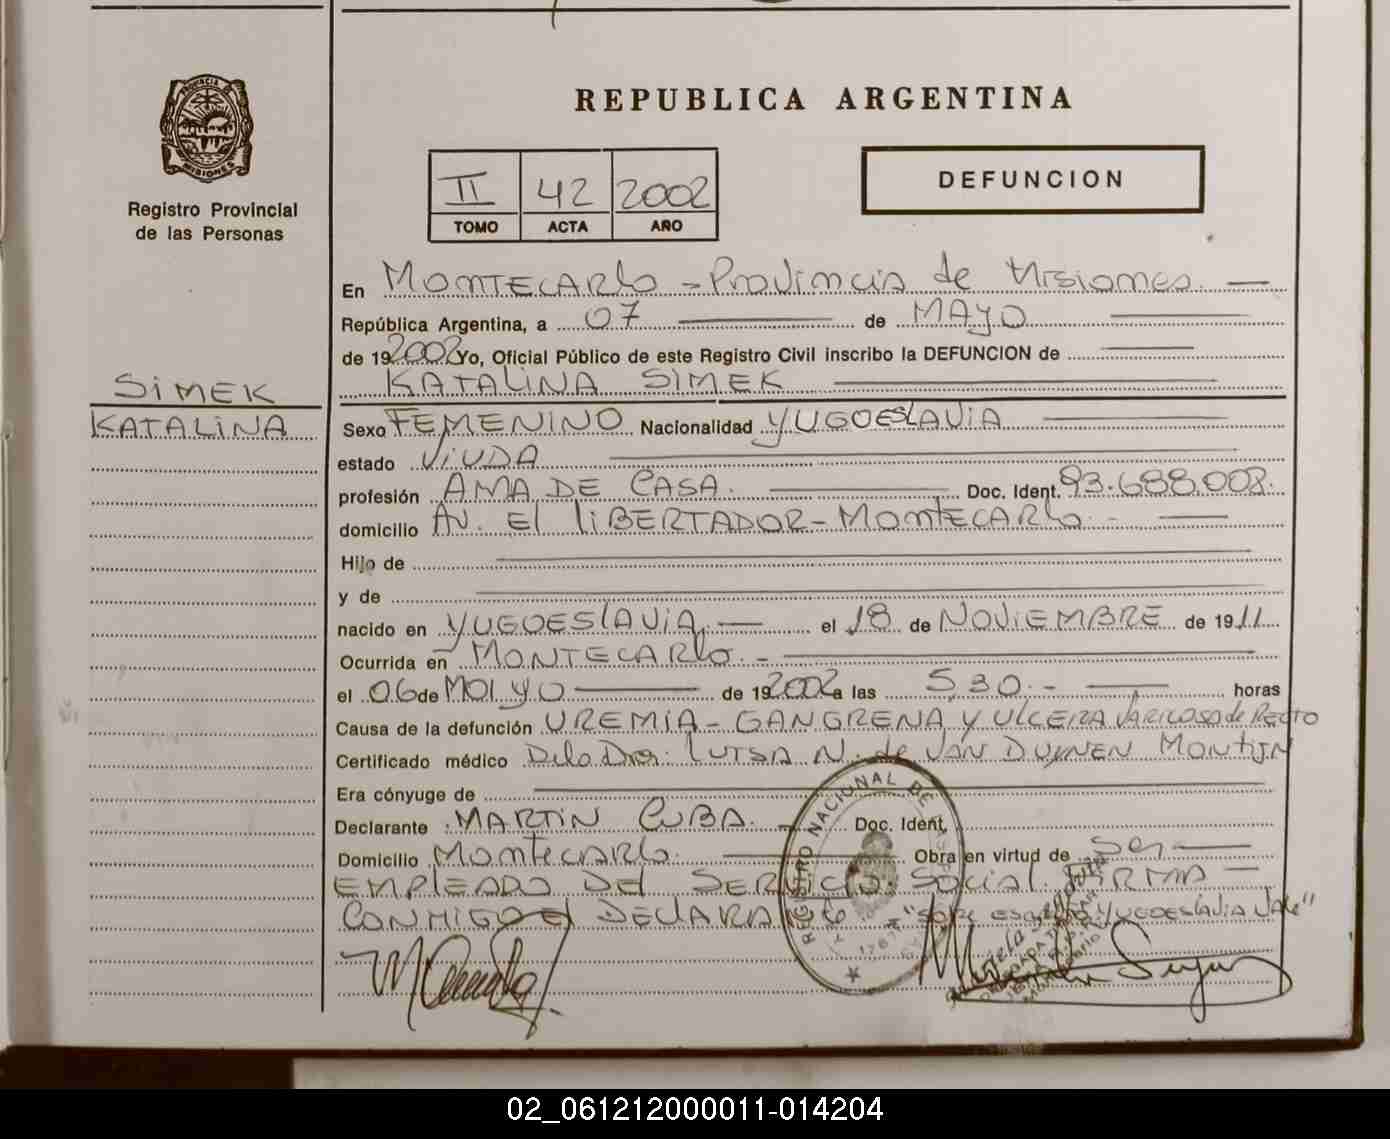 PROVINCIA DE
MISIONES
Registro Provincial
de las Personas
REPUBLICA ARGENTINA
II 42 2002
TOMO ACTA AÑO
DEFUNCION
En MONTECARlo - Provincia de Misiones
República Argentina, a 07 de MAYO
de 192002 Yo, Oficial Público de este Registro Civil inscribo la DEFUNCION de
KATALINA SIMEK
SIMEK
KATALINA
Sexo FEMENINO Nacionalidad YUGOESLAVIA
estado VIUDA
profesión AMA DE CASA. Doc. Ident. 93.688.008.
domicilio AV. El LIBERTADOR - MONTECARLO. -
Hijo de
y de
nacido en YUGOESLAVIA, el 18 de NOVIEMBRE de 1911
Ocurrida en MONTECARLO. -
el 06 de MAYO de 192002 a las 5,30. - horas
Causa de la defunción UREMIA - GANGRENA Y ULCERA VARICOSA de RECTO
Certificado médico De la Dra: LUISA N. de VAN DUYNEN MONTIJN
Era cónyuge de
Declarante MARTIN CUBA. Doc. Ident.
Domicilio Montecarlo. Obra en virtud de Ser
EMPLEADO DEL SERVICIO SOCIAL. FIRMA
CONMIGO El DECLARANTE "YUGOESLAVIA VALE"
REGISTRO NACIONAL DE
02_061212000011-014204